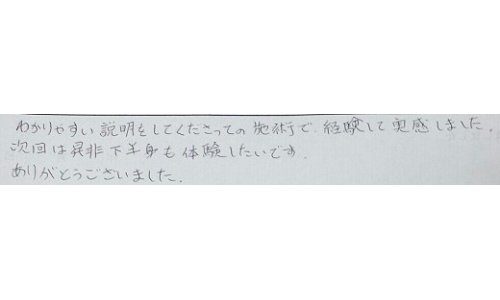 わかりやすい説明をしてくださっての施術で、経験して実感しました。
次回は是非下半身も体験したいです。
ありがとうございました。